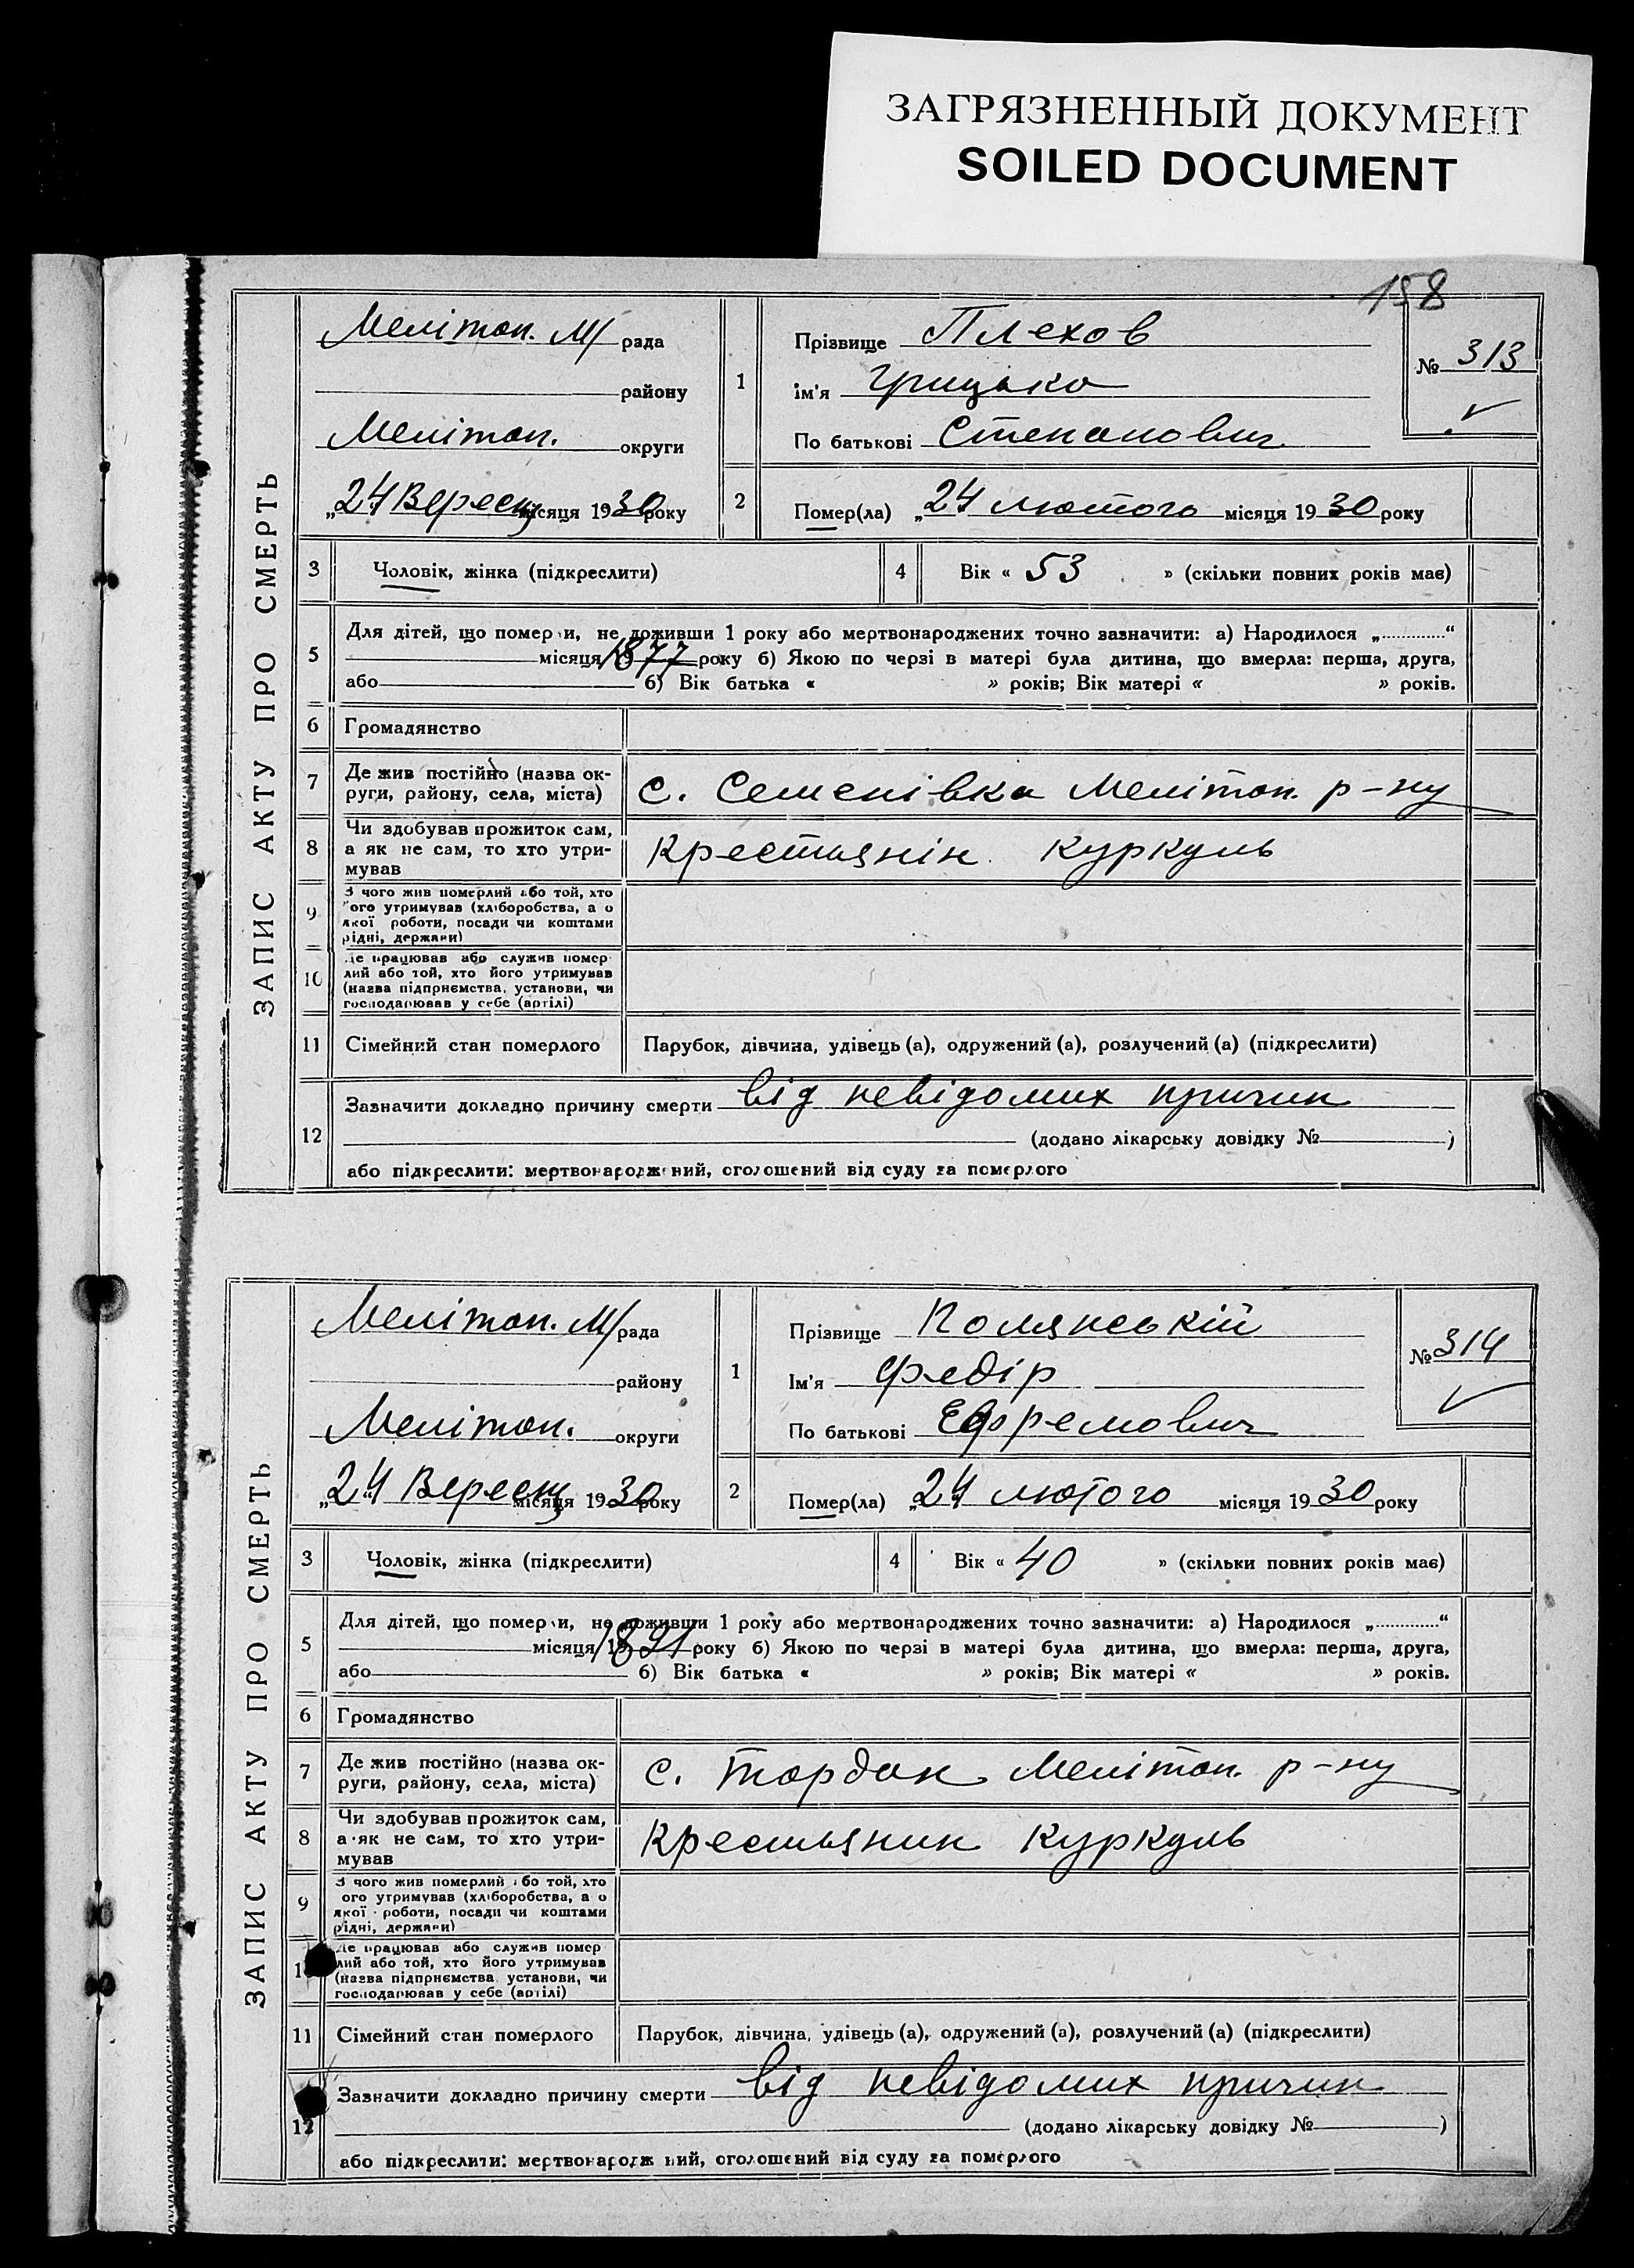 ЗАГРЯЗНЕННЫЙ ДОКУМЕНТ
SOILED DOCUMENT
158
ЗАПИС АКТУ ПРО СМЕРТЬ
Мелітоп. М/ рада
району
Мелітоп. округи
„24 Вересн місяця 1930 року
1
Прізвище Плехов
Ім'я Грицько
По батькові Степанович
№ 313
2 Помер(ла) „24 лютого місяця 1930 року
3 Чоловік, жінка (підкреслити)
4 Вік « 53 » (скільки повних років має)
5 Для дітей, що померли, не доживши 1 року або мертвонароджених точно зазначити: а) Народилося „............“
місяця 1877 року б) Якою по черзі в матері була дитина, що вмерла: перша, друга,
або б) Вік батька « » років; Вік матері « » років.
6 Громадянство
7 Де жив постійно (назва ок-
руги, району, села, міста)
с. Семенівка Мелітоп. р-ну
8 Чи здобував прожиток сам,
а як не сам, то хто утри-
мував
Крестьянін Куркуль
9 З чого жив померлий або той, хто
його утримував (хліборобства, з
якої роботи, посади чи коштами
рідні, держави)
10 Де працював або служив помер-
лий або той, хто його утримував
(назва підприємства, установи, чи
господарював у себе (артілі)
11 Сімейний стан померлого Парубок, дівчина, удівець (а), одружений (а), розлучений (а) (підкреслити)
12 Зазначити докладно причину смерти від невідомих причин
(додано лікарську довідку № )
або підкреслити: мертвонароджений, оголошений від суду за померлого
ЗАПИС АКТУ ПРО СМЕРТЬ
Мелітоп. М/ рада
району
Мелітоп. округи
„24 Вересн місяця 1930 року
1
Прізвище Полянській
Ім'я Федір
По батькові Ефремович
№ 314
2 Помер(ла) „24 лютого місяця 1930 року
3 Чоловік, жінка (підкреслити)
4 Вік « 40 » (скільки повних років має)
5 Для дітей, що померли, не доживши 1 року або мертвонароджених точно зазначити: а) Народилося „............“
місяця 1891 року б) Якою по черзі в матері була дитина, що вмерла: перша, друга,
або б) Вік батька « » років; Вік матері « » років.
6 Громадянство
7 Де жив постійно (назва ок-
руги, району, села, міста)
с. Тордан Мелітоп. р-ну
8 Чи здобував прожиток сам,
а як не сам, то хто утри-
мував
Крестьянин Куркуль
9 З чого жив померлий або той, хто
його утримував (хліборобства, з
якої роботи, посади чи коштами
рідні, держави)
Де працював або служив помер-
лий або той, хто його утримував
(назва підприємства, установи, чи
господарював у себе (артілі)
11 Сімейний стан померлого Парубок, дівчина, удівець (а), одружений (а), розлучений (а) (підкреслити)
12 Зазначити докладно причину смерти від невідомих причин
(додано лікарську довідку № )
або підкреслити: мертвонароджений, оголошений від суду за померлого